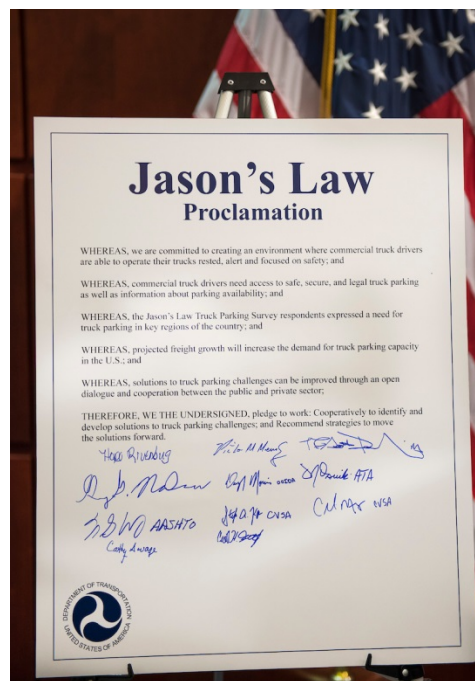 Jason's Law
Proclamation
WHEREAS, we are committed to creating an environment where commercial truck drivers
are able to operate their trucks rested, alert and focused on safety; and
WHEREAS, commercial truck drivers need access to safe, secure, and legal truck parking
as well as information about parking availability; and
WHEREAS, the Jason's Law Truck Parking Survey respondents expressed a need for
truck parking in key regions of the country; and
WHEREAS, projected freight growth will increase the demand for truck parking capacity
in the U.S.; and
WHEREAS, solutions to truck parking challenges can be improved through an open
dialogue and cooperation between the public and private sector;
THEREFORE, WE THE UNDERSIGNED, pledge to work: Cooperatively to identify and
develop solutions to truck parking challenges; and Recommend strategies to move
the solutions forward.
ATA
AASHTO
CVSA
CVSA
DEPARTMENT OF TRANSPORTATION
UNITED STATES OF AMERICA